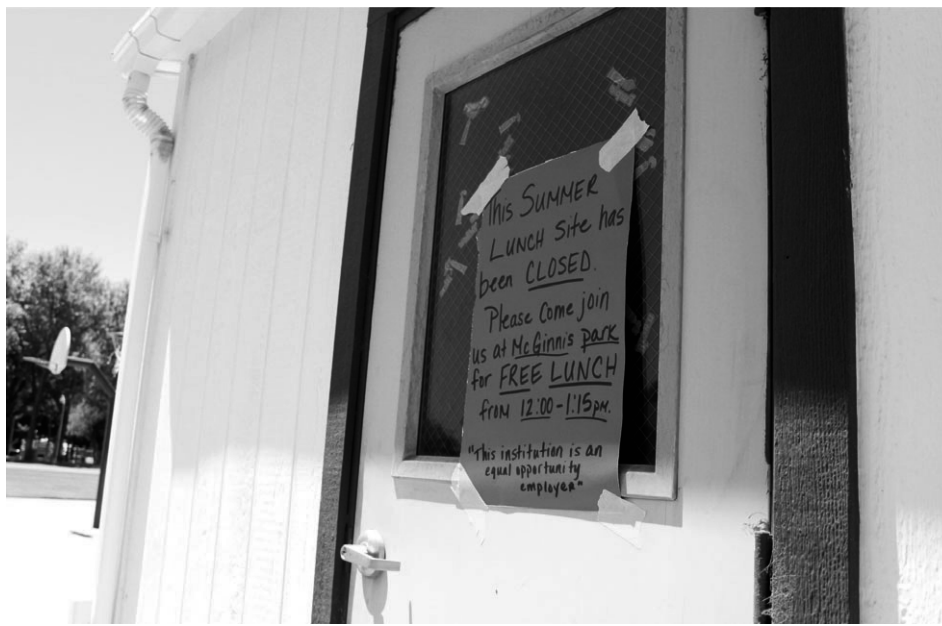 This SUMMER
LUNCH Site has
been CLOSED.
Please Come join
us at McGinnis park
for FREE LUNCH
from 12:00-1:15pm.
"This institution is an
equal opportunity
employer"